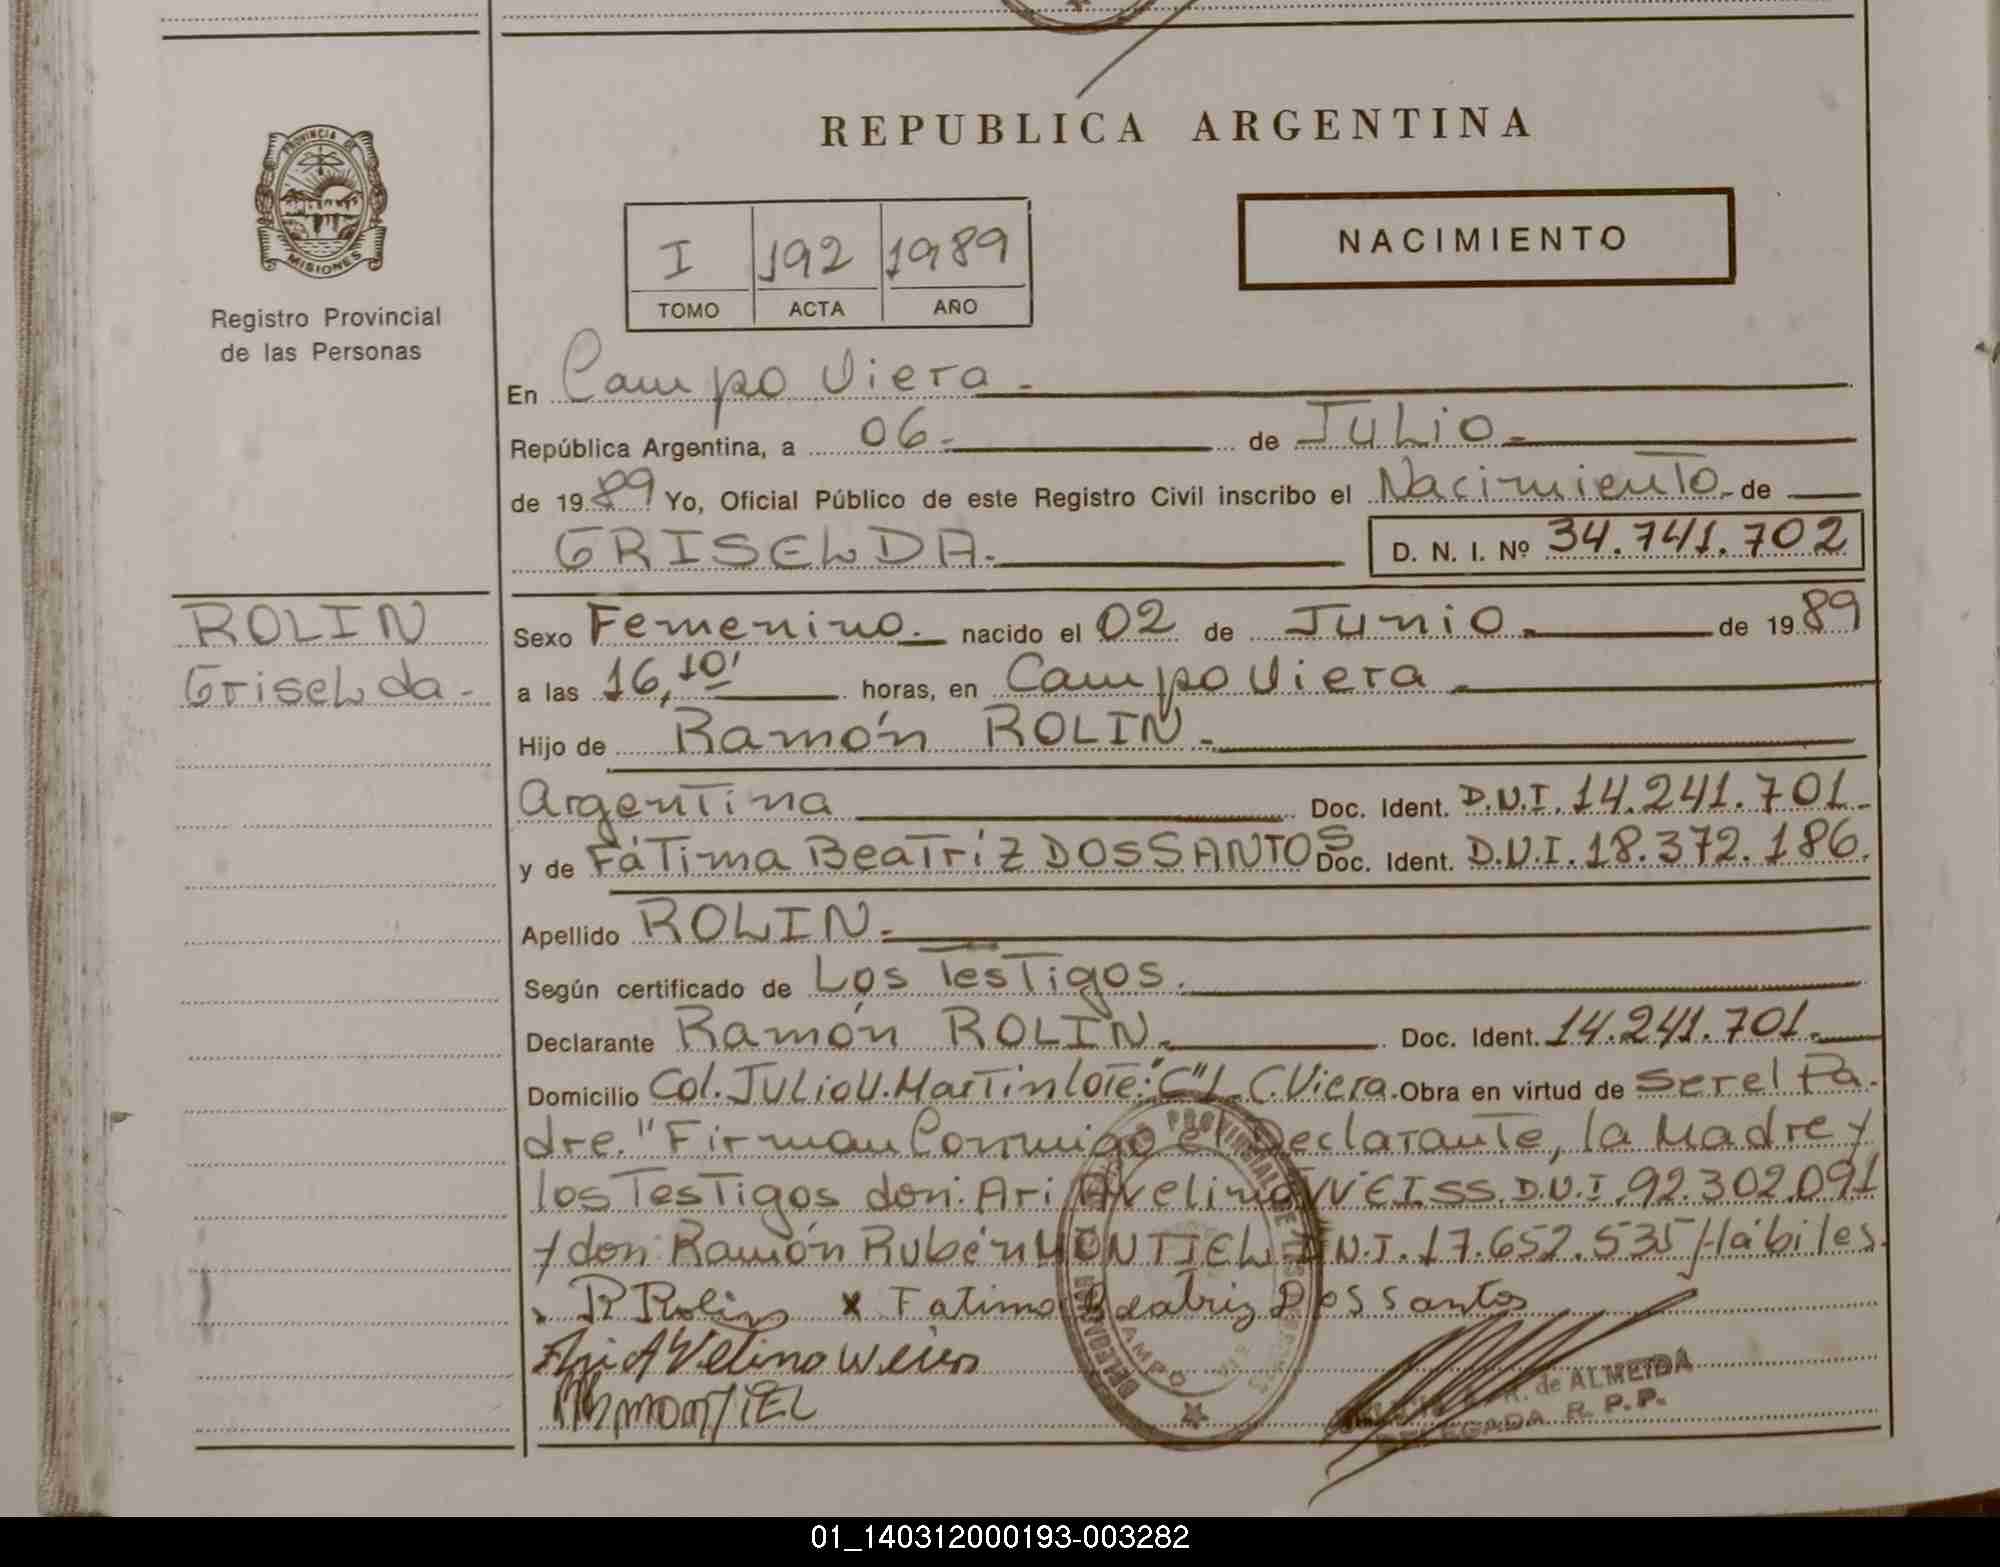 PROVINCIA DE
MISIONES
Registro Provincial
de las Personas
REPUBLICA ARGENTINA
I 192 1989
TOMO ACTA AÑO
NACIMIENTO
En Campo Viera.
República Argentina, a 06. de JULIO.
de 1989 Yo, Oficial Público de este Registro Civil inscribo el Nacimiento de
GRISELDA. D. N. I. Nº 34.741.702
ROLIN
Griselda.
Sexo Femenino. nacido el 02 de Junio. de 1989
a las 16,10' horas, en Campo Viera.
Hijo de Ramón ROLIN.
Argentina Doc. Ident. D.N.I. 14.241.701.
y de Fátima Beatríz DOSSANTOS Doc. Ident. D.N.I. 18.372.186.
Apellido ROLIN.
Según certificado de Los Testigos.
Declarante Ramón ROLIN. Doc. Ident. 14.241.701.
Domicilio Col. JULIO U. Martin lote: "C" L. C. Viera. Obra en virtud de ser el Pa-
dre." Firman Conmigo el Declarante, la Madre y
los Testigos don: Ari Avelino WEISS. D.N.I. 92.302.091
y don: Ramón Rubén MONTIEL D.N.I. 17.652.535 Hábiles.
R Rolin x Fatima Beatriz Dos santos
Ari AVelino Weiss
MONTIEL
PROVINCIAL DE
CAMPO
de ALMEIDA
DELEGADA R. P. P.
01_140312000193-003282